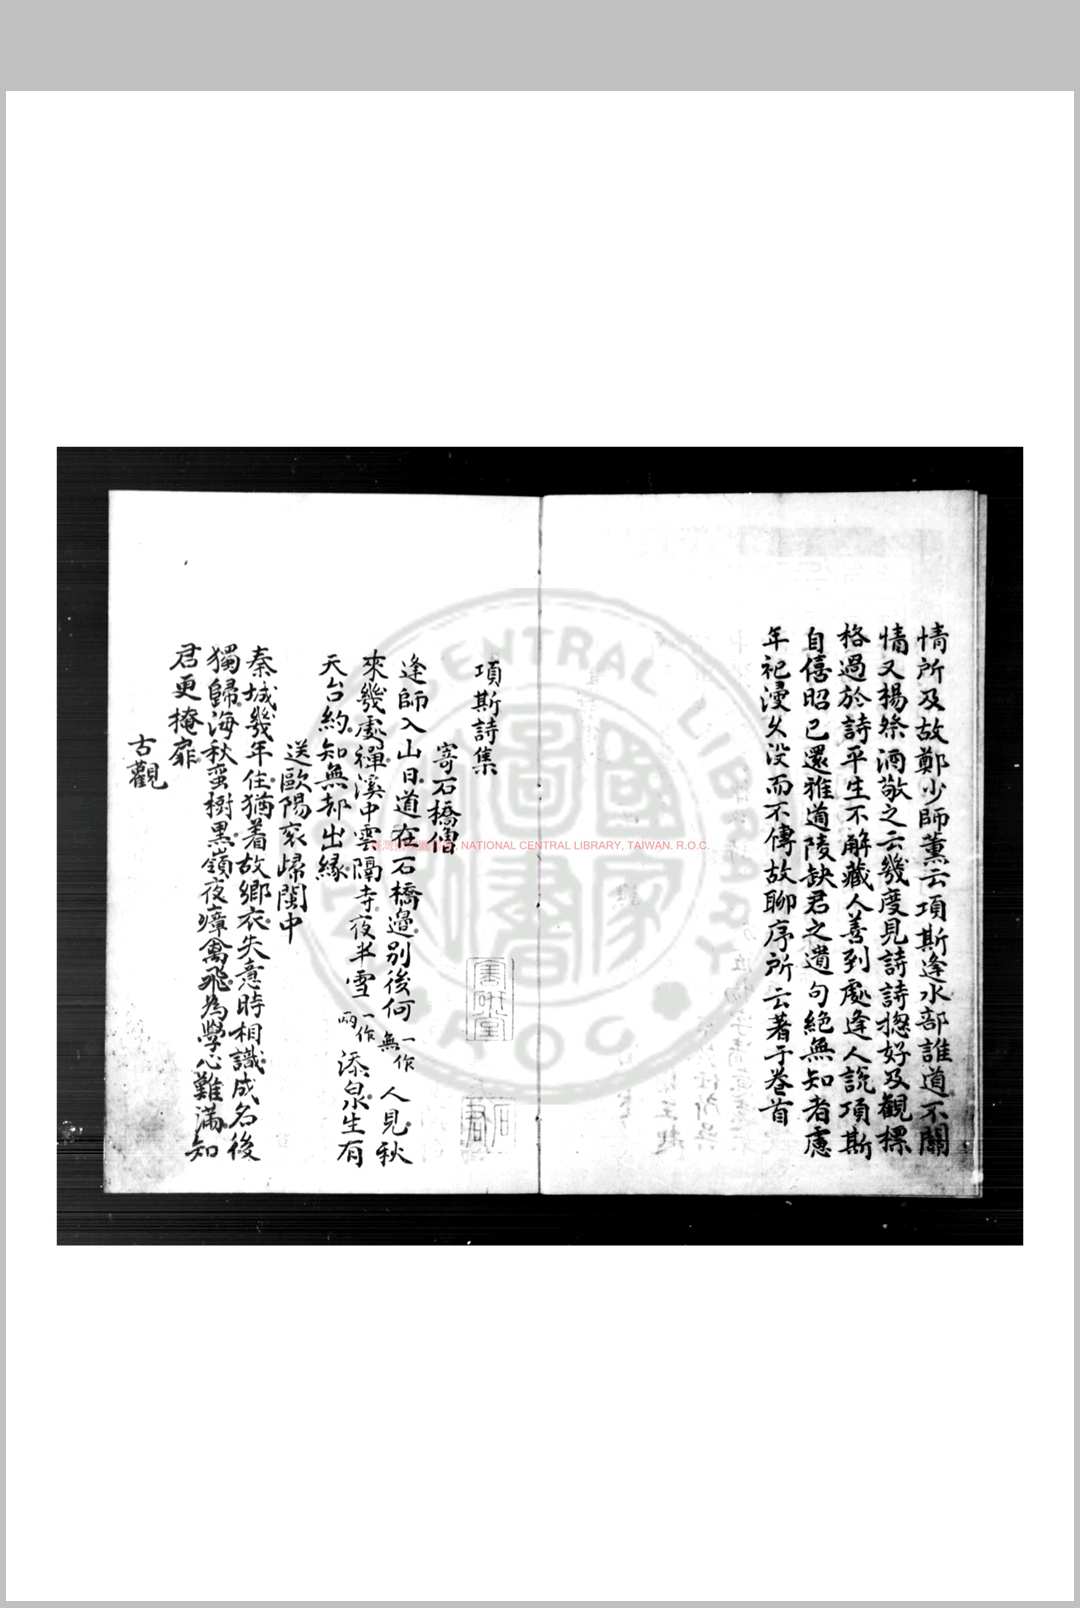 情所及故鄭少師薰云項斯逢水部誰道不關
情又楊祭酒敬之云幾度見詩詩揔好及觀標
格過於詩平生不解藏人善到處逢人說項斯
自僖昭已還雅道陵缺君之遺句絕無知者慮
年祀浸久没而不傳故聊序所云著于卷首
項斯詩集
寄石橋僧
逢師入山日道在石橋邊別後何一作無人見秋
來幾處禪溪中雲隔寺夜半雪一作雨添泉生有
天台約知無却出緣
送歐陽衮歸閩中
秦城幾年住猶着故鄉衣失意時相識成名後
獨歸海秋蛮樹黒嶺夜瘴禽飛為學心難滿知
君更掩扉
古觀
NATIONAL CENTRAL LIBRARY, TAIWAN, R.O.C.
NATIONAL CENTRAL LIBRARY
R.O.C
國家圖書館